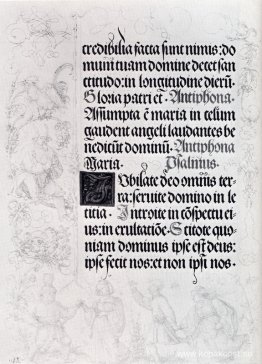 credibilia facta sunt nimis: do
mum tuam domine decet san
ctitudo: in longitudine dierū.
Gloria patri et. Antiphona.
Assumpta ē maria in celum
gaudent angeli laudantes be
nedicūt dominū. Antiphona
Maria. Psalmus.
IVbilate deo omnis ter
ra: servite domino in le
titia. Introite in cōspectu ei
us: in exultatiōe. Scitote quo
niam dominus ipse est deus:
ipse fecit nos: et non ipsi nos.